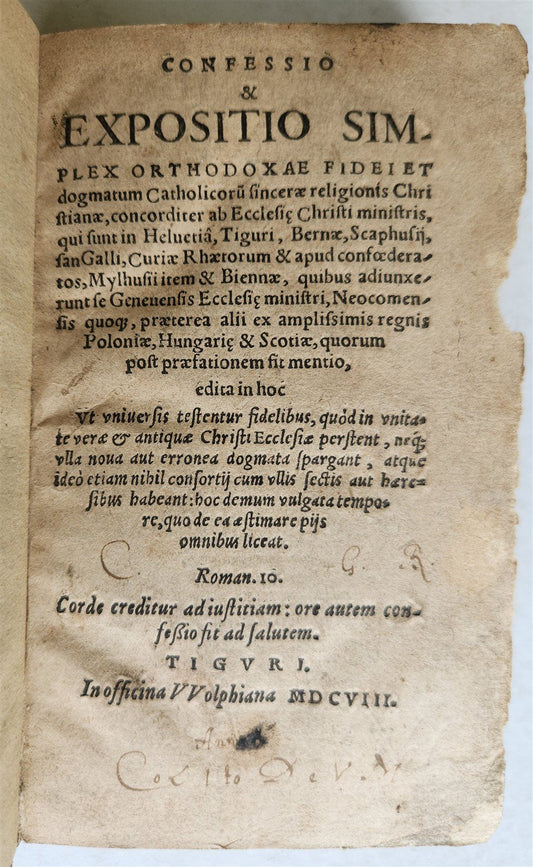 CONFESSIO
&
EXPOSITIO SIM-
PLEX ORTHODOXAE FIDEI ET
dogmatum Catholicorũ sinceræ religionis Chri
stianæ, concorditer ab Ecclesię Christi ministris,
qui sunt in Heluetiâ, Tiguri, Bernæ, Scaphusij,
sanGalli, Curiæ Rhætorum & apud confœdera-
tos, Mylhusii item & Biennæ, quibus adiunxe-
runt se Geneuensis Ecclesię ministri, Neocomen-
sis quoq;, præterea alii ex amplissimis regnis
Poloniæ, Hungarię & Scotiæ, quorum
post præfationem fit mentio,
edita in hoc
Vt vniuersis testentur fidelibus, quòd in vnita-
te veræ & antiquæ Christi Ecclesiæ perstent, neq;
vlla noua aut erronea dogmata spargant, atque
ideò etiam nihil consortij cum vllis sectis aut hære-
sibus habeant: hoc demum vulgata tempo-
re, quo de ea æstimare pijs
omnibus liceat.
C. G. R.
Roman. 10.
Corde creditur ad iustitiam: ore autem con-
fessio fit ad salutem.
TIGVRI.
In officina VVolphiana MDCVIII.